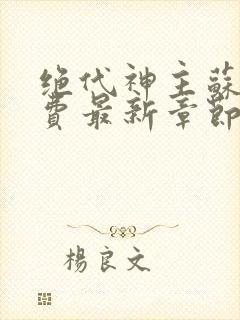 绝代神主蘇
費最新章節
楊良文